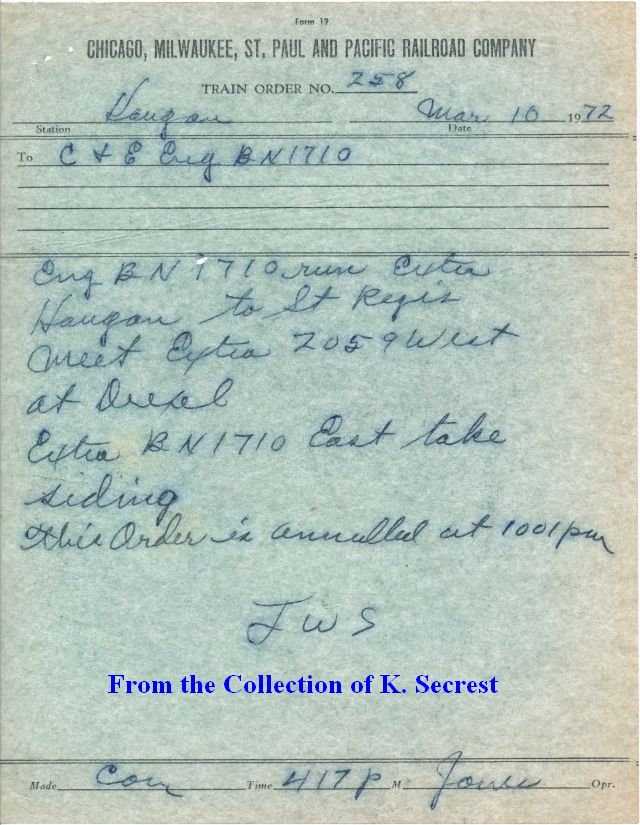 Form 19
CHICAGO, MILWAUKEE, ST. PAUL AND PACIFIC RAILROAD COMPANY
TRAIN ORDER NO. 258
Haugan Mar 10 1972
Station Date
To C & E Eng BN 1710
Eng BN 1710 run Extra
Haugan to St Regis
Meet Extra 2059 West
at Drexel
Extra BN 1710 East take
siding
this Order is annulled at 1001 pm
JWS
From the Collection of K. Secrest
Made Com Time 417 P M Jones Opr.